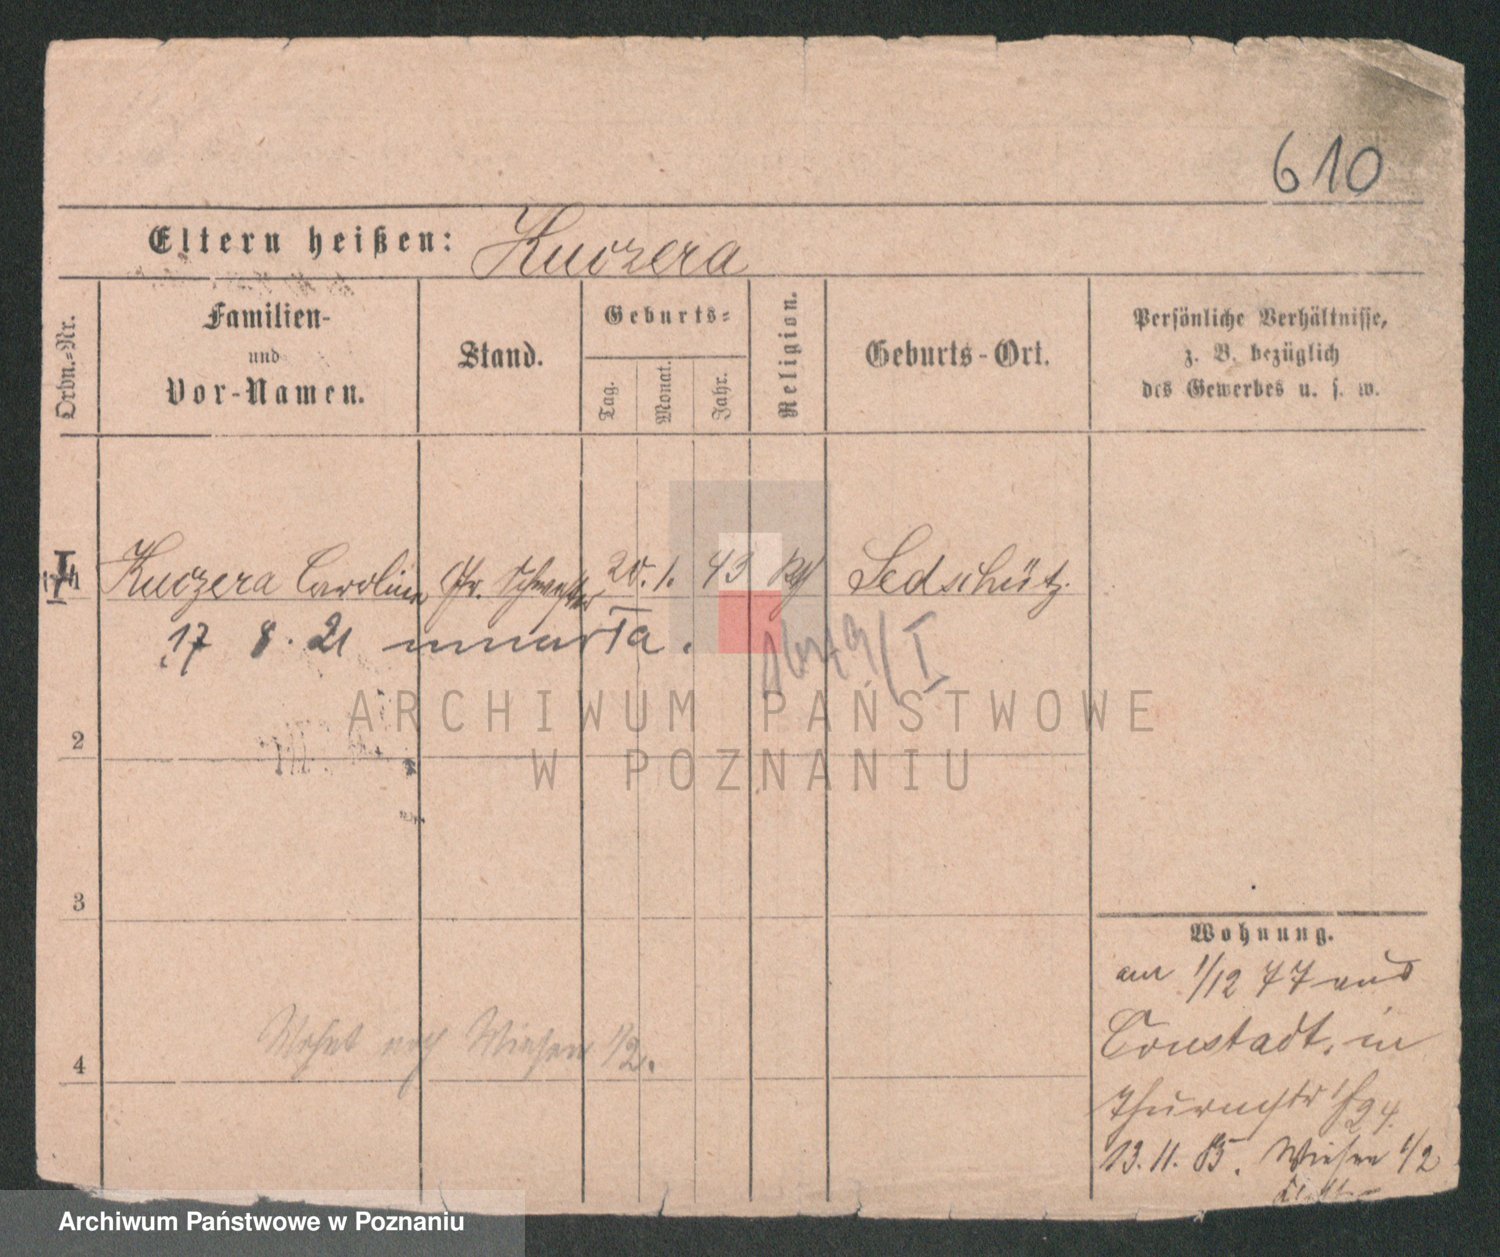 610
Eltern heißen: Kuczera
Ordn.-Nr.
Familien-
und
Vor-Namen.
Stand.
Geburts-
Tag.
Monat.
Jahr.
Religion.
Geburts-Ort.
Persönliche Verhältnisse,
z. B. bezüglich
des Gewerbes u. s. w.
I Kuczera Caroline Gr. Schwester 20. 1. 43 Sedschütz
17 8. 21 umarła.
ARCHIWUM PAŃSTWOWE
W POZNANIU
2
3
Wohnung.
am 1/12 77 aus
Constadt, in
Thurmstr 24.
13. 11. 85. Wiesen 1/2
Wohnt noch Wiesen 1/2.
4
Archiwum Państwowe w Poznaniu